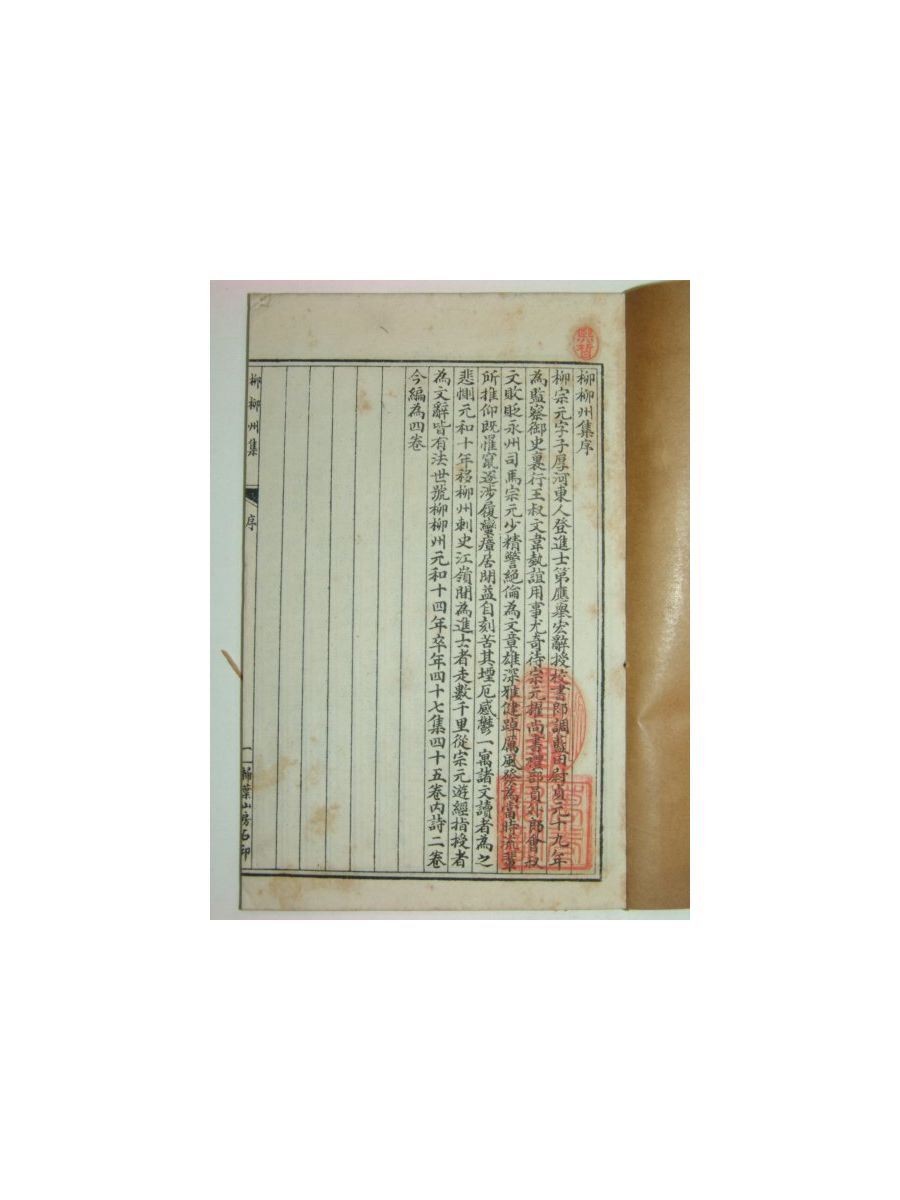 柳柳州集序
柳宗元字子厚河東人登進士第應舉宏辭授校書郎調藍田尉貞元十九年
為監察御史裏行王叔文韋執誼用事尤奇待宗元擢尚書禮部員外郎會叔
文敗貶永州司馬宗元少精警絕倫為文章雄深雅健踔厲風發為當時流輩
所推仰既罹竄逐涉履蠻瘴居閒益自刻苦其堙厄感鬱一寓諸文讀者為之
悲惻元和十年移柳州刺史江嶺閒為進士者走數千里從宗元遊經指授者
為文辭皆有法世號柳柳州元和十四年卒年四十七集四十五卷內詩二卷
今編為四卷
柳柳州集
序
一
掃葉山房石印